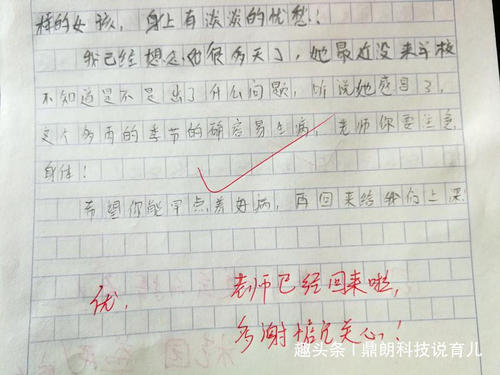 样的女孩，身上有淡淡的忧愁！
我已经想念她很多天了，她最近没来学校
不知道是不是出了什么问题，听说她感冒了，
这个多雨的季节的确容易生病，老师你要注意
身体！
希望你能早点养好病，再回来给我们上课
优．
老师已经回来啦，
多谢关心！
趣头条丨鼎朗科技说育儿